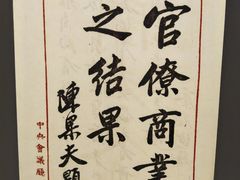 官僚商業
之结果
陳果夫題
中央會議廳